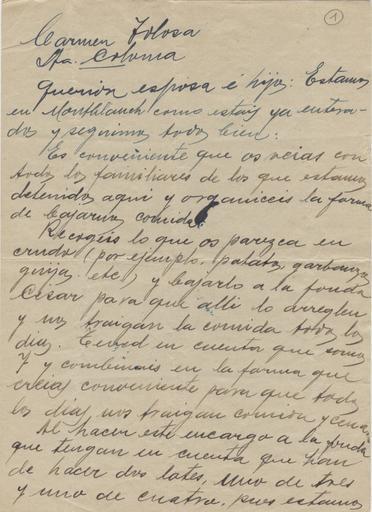 1
Carmen Tolosa
Sta. Coloma
Querida esposa é hijos: Estamos
en Montblanch como estais ya entera-
dos y seguimos todos bien:
Es conveniente que os veais con
todos los familiares de los que estamos
detenidos aqui y organiceis la forma
de bajarnos comida.
Recogeis lo que os parezca en
crudo (por ejemplo, patatas, garbanzos
guijas etc) y bajarlo a la fonda
César para que alli lo arreglen
y nos traigan la comida todos los
dias. Tened en cuenta que somos
7 y combinais en la forma que
creais conveniente para que todos
los dias nos traigan comida y cena
Al hacer este encargo a la fonda
que tengan en cuenta que han
de hacer dos lotes, uno de tres
y uno de cuatro, pues estamos